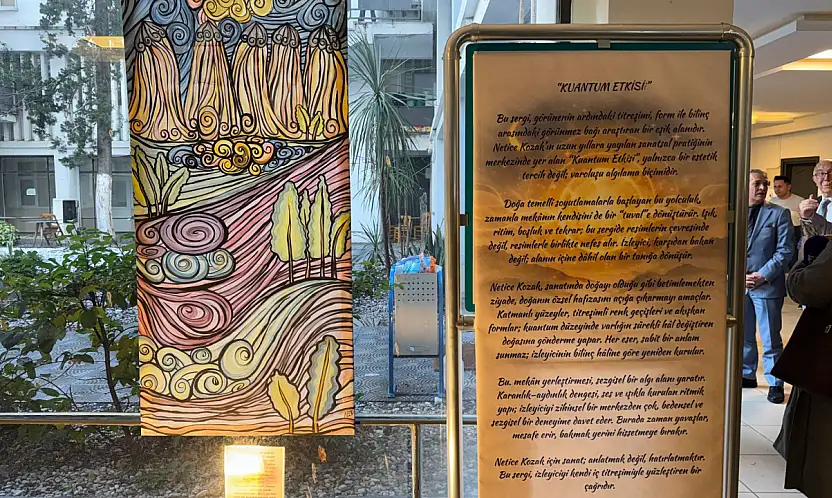 "KUANTUM ETKİSİ:"
Bu sergi, görünenin ardındaki titreşimi, form ile bilinç
arasındaki görünmez bağı araştıran bir eşik alanıdır.
Netice Kozak'ın uzun yıllara yayılan sanatsal pratiğinin
merkezinde yer alan "Kuantum Etkisi", yalnızca bir estetik
tercih değil; varoluşu algılama biçimidir.
Doğa temelli soyutlamalarla başlayan bu yolculuk,
zamanla mekânın kendisini de bir "tuval"e dönüştürür. Işık,
ritim, boşluk ve tekrar; bu sergide resimlerin çevresinde
değil, resimlerle birlikte nefes alır. İzleyici, karşıdan bakan
değil; alanın içine dâhil olan bir tanığa dönüşür.
Netice Kozak, sanatında doğayı olduğu gibi betimlemekten
ziyade, doğanın özsel hafızasını açığa çıkarmayı amaçlar.
Katmanlı yüzeyler, titreşimli renk geçişleri ve akışkan
formlar; kuantum düzeyinde varlığın sürekli hâl değiştiren
doğasına gönderme yapar. Her eser, sabit bir anlam
sunmaz; izleyicinin bilinç hâline göre yeniden kurulur.
Bu, mekân yerleştirmesi, sezgisel bir algı alanı yaratır.
Karanlık–aydınlık dengesi, ses ve ışıkla kurulan ritmik
yapı; izleyiciyi zihinsel bir merkezden çok, bedensel ve
sezgisel bir deneyime davet eder. Burada zaman yavaşlar,
mesafe erir, bakmak yerini hissetmeye bırakır.
Netice Kozak için sanat; anlatmak değil, hatırlatmaktır.
Bu sergi, izleyiciyi kendi iç titreşimiyle yüzleştiren bir
çağrıdır.